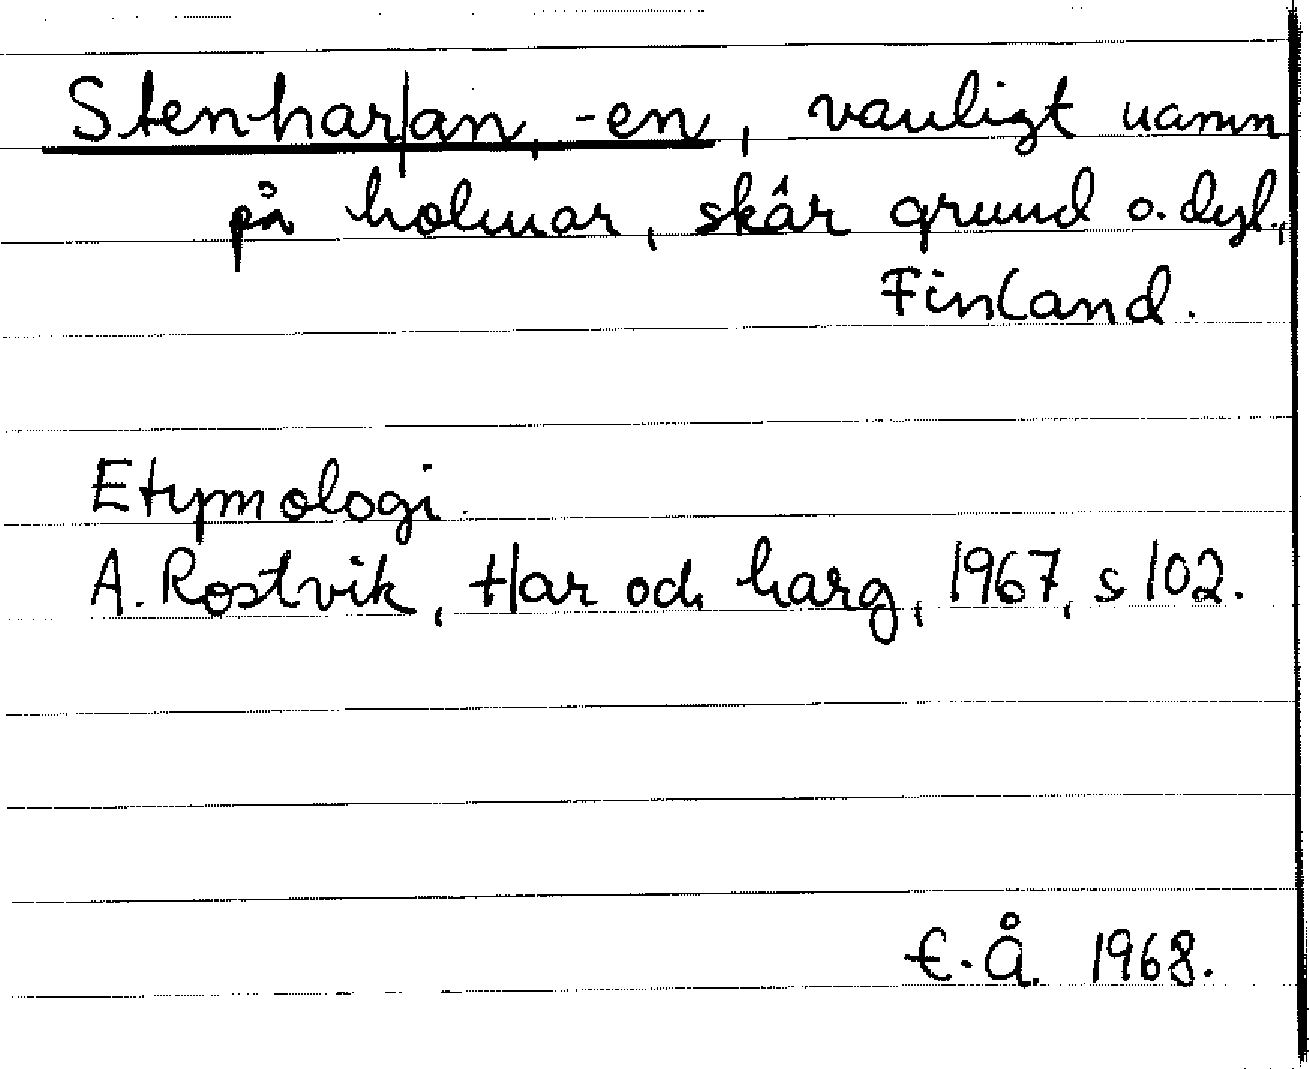 Stenhar|an, -en, vanligt namn
på holmar, skär grund o. dyl.,
Finland.
Etymologi.
A. Rostvik, Har och harg, 1967, s 102.
E.Å. 1968.